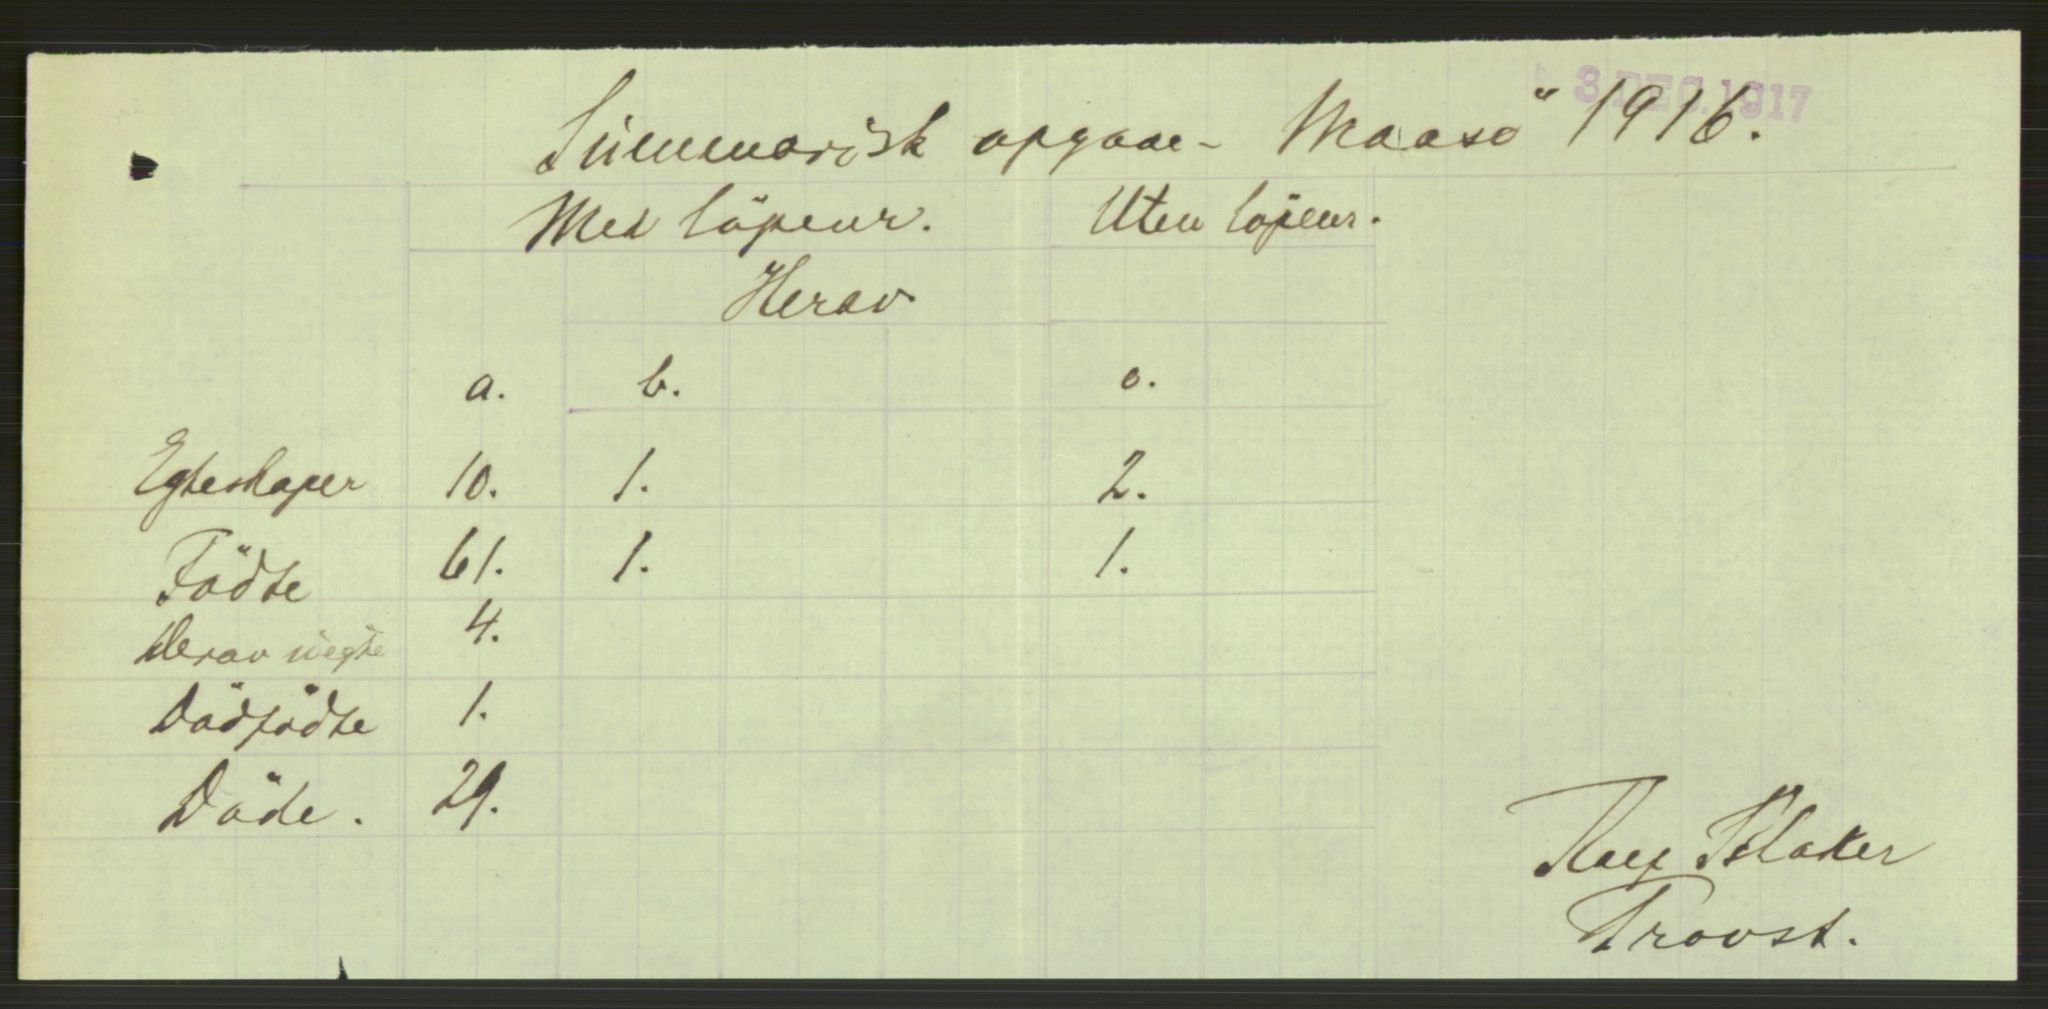 3 DEC. 1917
Summarisk opgave - Maasö 1916.
Med löpenr. Uten löpenr.
Herav
a. b. c.
Egteskaper 10. 1. 2.
Födte 61. 1. 1.
Herav uegte 4.
Dödfödte 1.
Döde. 29.
Blaker
Provst.